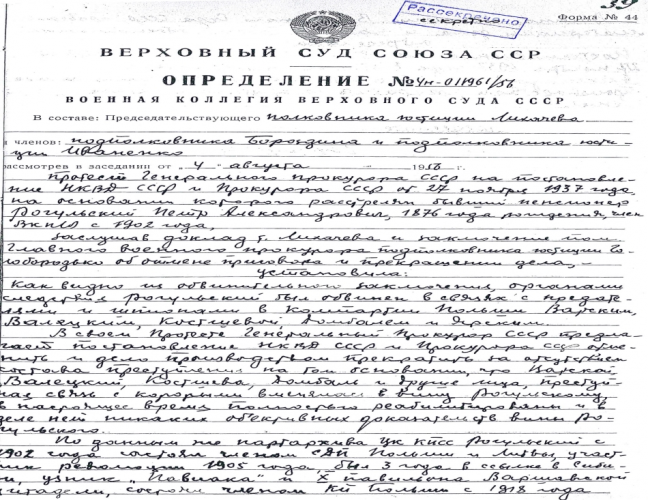 39
Рассекречено
секретно
Форма № 44
ВЕРХОВНЫЙ СУД СОЮЗА ССР
ОПРЕДЕЛЕНИЕ №4н-011961/56
ВОЕННАЯ КОЛЛЕГИЯ ВЕРХОВНОГО СУДА СССР
В составе: Председательствующего полковника юстиции Лихачева
и членов: подполковника Борондина и подполковника юсти-
ции Иваненко
рассмотрев в заседании от "4" августа 1956 г.
протест Генерального прокурора СССР на постановле-
ние НКВД СССР и Прокурора СССР от 27 ноября 1937 года,
на основании которого расстрелян бывший пенсионер
Рогульский Петр Александрович, 1876 года рождения, член
ВКП(б) с 1902 года,
Заслушав доклад т. Лихачева и заключение пом.
Главного военного прокурора подполковника юстиции
об отмене приговора и прекращении дела, -
установила:
Как видно из обвинительного заключения, органами
следствия Рогульский был обвинен в связях с предате-
лями и шпионами в Компартии Польши Варским,
Валецким, Костшевой, Домбалем и
В своем протесте Генеральный Прокурор СССР предла-
гает постановление НКВД СССР и Прокурора СССР отме-
нить и дело производством прекратить за отсутствием
состава преступления на том основании, что Варский
Валецкий, Костшева, Домбаль и другие лица, преступ-
ная связь с которыми вменялась в вину Рогульскому,
в настоящее время полностью реабилитированы и в
деле нет никаких объективных доказательств вины Ро-
гульского.
По данным же партархива ЦК КПСС Рогульский с
1902 года состоял членом СДП Польши и Литвы, участ-
ник революции 1905 года, был 3 года в ссылке в Сиби-
ри, узник "Павиака" и X павильона Варшавской
цитадели, состоял членом КП Польши с 1918 года